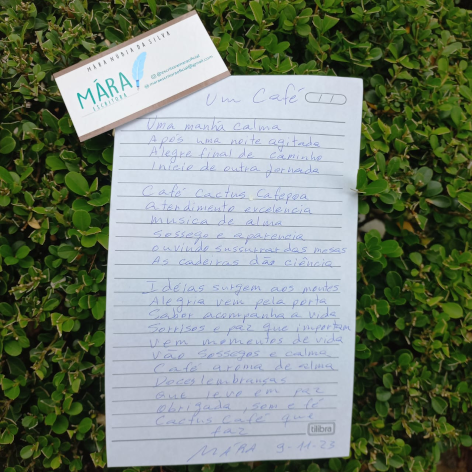 MARA NUBIA DA SILVA
MARA
ESCRITORA
@escritoramaraoficial
maraescritoraoficial@gmail.com
Um Café
Uma manhã calma
Após uma noite agitada
Alegre final de caminho
Início de outra jornada
Café Cactus Catepoa
atendimento excelência
musica de alma
sossego e aparencia
ouvindo sussurrar das mesas
As cadeiras dão ciência
Idéias surgem aos montes
Alegria vem pela porta
Sabor acompanha a vida
Sorrisos e paz que importam
Vem momentos de vida
Vão sossegos e calma
Café aroma de alma
Voces lembranças
Que leve em paz
obrigada, som e fé
Cactus Café que
faz
MÁRA 9-11-23
tilibra